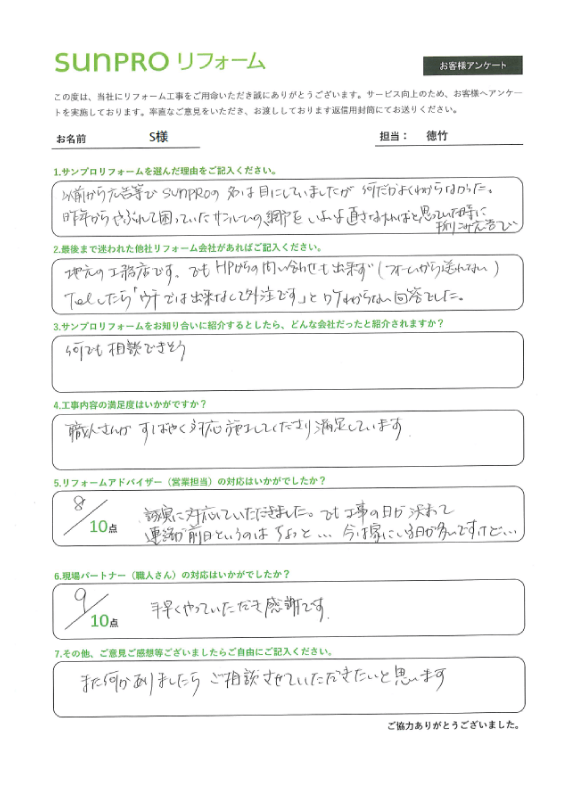 SUNPRO リフォーム
お客様アンケート
この度は、当社にリフォーム工事をご用命いただき誠にありがとうございます。サービス向上のため、お客様へアンケー
トを実施しております。率直なご意見をいただき、お渡ししております返信用封筒にてお送りください。
お名前 S様 担当： 徳竹
1.サンプロリフォームを選んだ理由をご記入ください。
以前から広告等で SUNPROの名は目にしていましたが 何だかよくわからなかった。
昨年からやぶれて困っていたサンルームの網戸をいよいよ直さなければと思っていた時に
折りこみ広告で
2.最後まで迷われた他社リフォーム会社があればご記入ください。
地元の工務店です。でもHPからの問い合わせも出来ず（フォームから送れない）
Telしたら「ウチでは出来なくて外注です」とワケわからない回答でした。
3.サンプロリフォームをお知り合いに紹介するとしたら、どんな会社だったと紹介されますか？
何でも相談できそう
4.工事内容の満足度はいかがですか？
職人さんが すばやく対応 施工してくださり満足しています
5.リフォームアドバイザー（営業担当）の対応はいかがでしたか？
8／10点 誠実に対応していただきました。でも工事の日が決まって
連絡が前日というのは ちょっと… 今は家にいる日が多いですけど…
6.現場パートナー（職人さん）の対応はいかがでしたか？
9／10点 手早くやっていただき感謝です
7.その他、ご意見ご感想等ございましたらご自由にご記入ください。
また何かありましたら ご相談させていただきたいと思います
ご協力ありがとうございました。